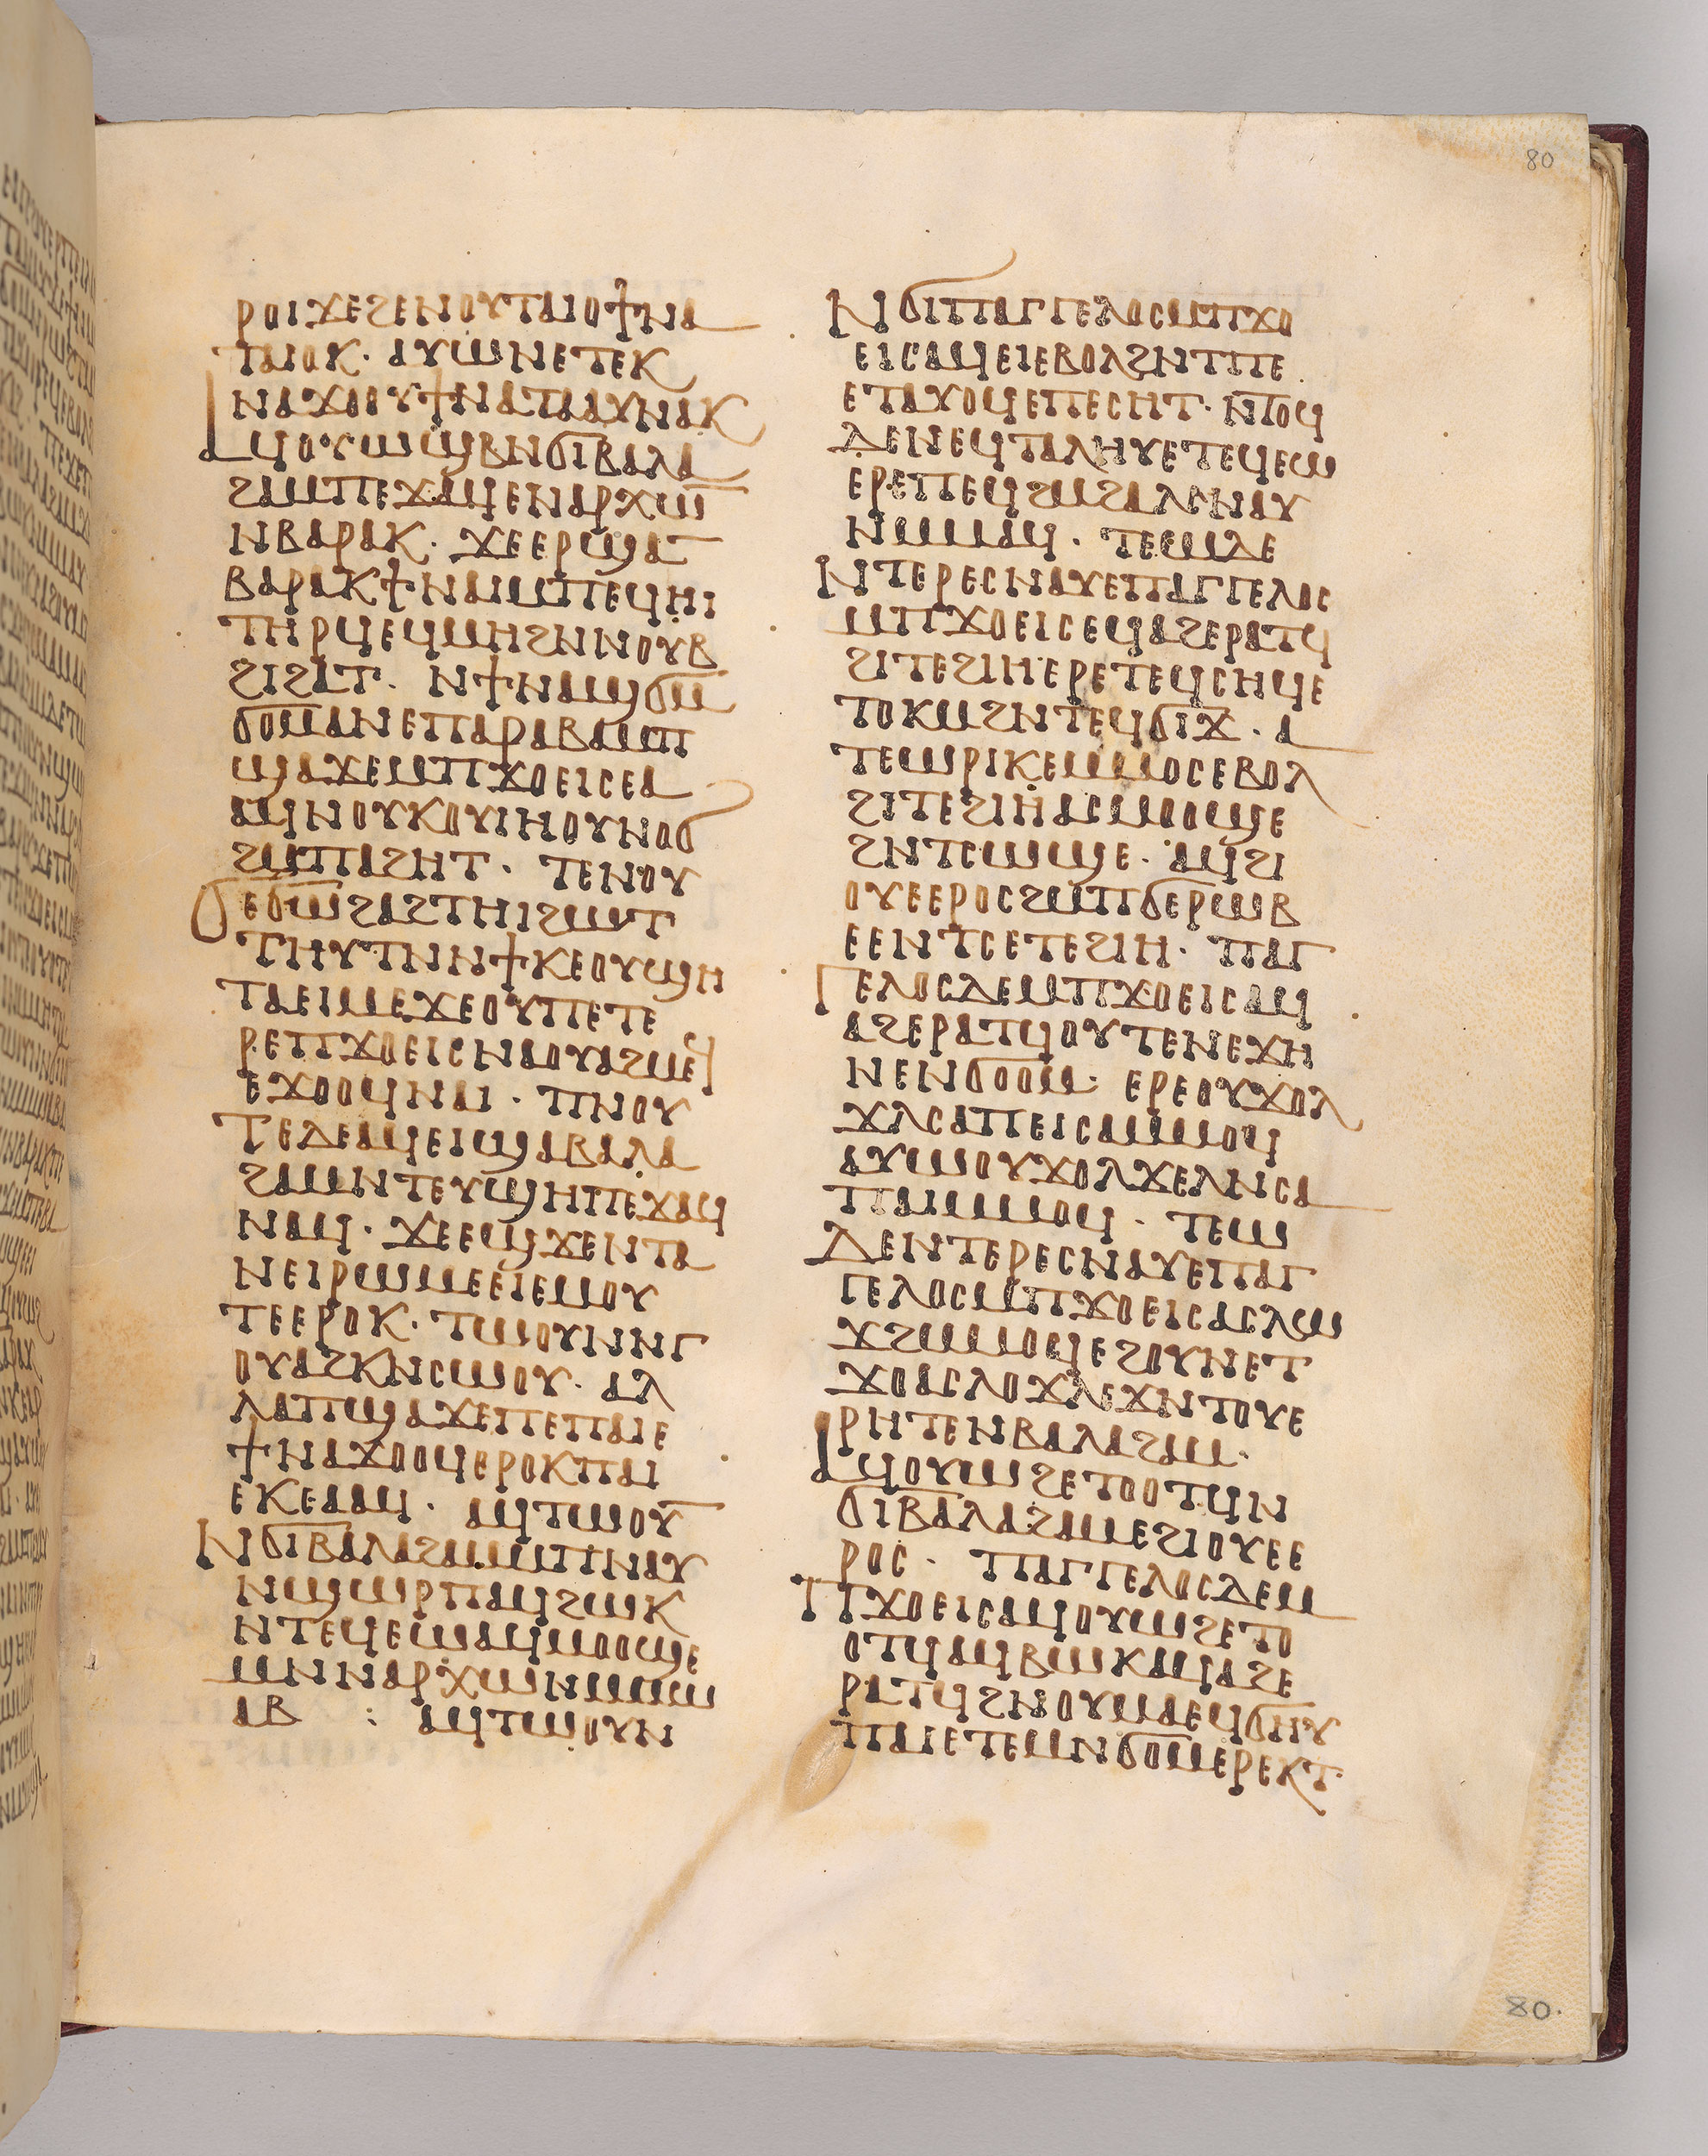 ⲣⲟⲓϫⲉϩⲉⲛⲟⲩⲧⲁⲓⲟϯⲛⲁ
ⲧⲁⲓⲟⲕ· ⲁⲩⲱⲛⲉⲧⲉⲕ
ⲛⲁϫⲟⲟⲩϯⲛⲁⲧⲁⲁⲩⲛⲁⲕ
ⲁϥⲟⲩⲱϣⲃⲛϭⲓⲃⲁⲗⲁ
ϩⲁⲙⲡⲉϫⲁϥⲉⲛⲁⲣⲭⲱ̅
ⲛⲃⲁⲣⲁⲕ· ϫⲉⲉⲣϣⲁ̅
ⲃⲁⲣⲁⲕϯⲛⲁⲓⲙⲡⲉϥⲏⲓ
ⲧⲏⲣϥⲉϥⲙⲏϩⲛⲛⲟⲩⲃ
ϩⲓϩⲁⲧ· ⲛϯⲛⲁϣϭⲙ
ϭⲟⲙⲁⲛⲉⲡⲁⲣⲁⲃⲁⲙⲡ
ϣⲁϫⲉⲙⲡϫⲟⲉⲓⲥⲉⲁ
ⲁϥⲛⲟⲩⲕⲟⲩⲓⲏⲟⲩⲛⲟϭ
ϩⲙⲡⲁϩⲏⲧ· ⲧⲉⲛⲟⲩ
ϭⲉϭⲱϩⲁϩⲧⲏⲓϩⲱⲧ
ⲧⲏⲩⲧⲛⲛϯⲕⲉⲟⲩϣⲏ
ⲧⲁⲉⲓⲙⲉϫⲉⲟⲩⲡⲉⲧⲉ
ⲣⲉⲡϫⲟⲉⲓⲥⲛⲁⲟⲩⲁϩⲙⲉϥ
ⲉϫⲟⲟϥⲛⲁⲓ· ⲡⲛⲟⲩ
ⲧⲉⲇⲉⲁϥⲉⲓϣⲁⲃⲁⲗⲁ
ϩⲁⲙⲛⲧⲉⲩϣⲏⲡⲉϫⲁϥ
ⲛⲁϥ· ϫⲉⲉϣϫⲉⲛⲧⲁ
ⲛⲉⲓⲣⲱⲙⲉⲉⲓⲉⲙⲟⲩ
ⲧⲉⲉⲣⲟⲕ· ⲧⲱⲟⲩⲛⲛⲅ
ⲟⲩⲁϩⲕⲛⲥⲱⲟⲩ· ⲁⲗ
ⲗⲁⲡϣⲁϫⲉⲡⲉⲡⲁⲓⲉ
ϯⲛⲁϫⲟⲟϥⲉⲣⲟⲕⲡⲁⲓ
ⲉⲕⲉⲁⲁϥ· ⲁϥⲧⲱⲟⲩ̅
ⲛϭⲓⲃⲁⲗⲁϩⲁⲙⲙⲡⲛⲁⲩ
ⲛϣⲱⲣⲡⲁϥϩⲱⲕ
ⲛⲧⲉϥⲉⲱⲁϥⲙⲟⲟϣⲉ
ⲙⲛⲛⲁⲣⲭⲱⲛⲙⲙⲱ
ⲁⲃ : ⲁϥⲧⲱⲟⲩⲛ
ⲛϭⲓⲡⲁⲅⲅⲉⲗⲟⲥⲙⲡϫⲟ
ⲉⲓⲥⲁϥⲉⲓⲉⲃⲟⲗϩⲛⲧⲡⲉ
ⲉⲧⲁϫⲟϥⲉⲡⲉⲥⲏⲧ· ⲛⲧⲟϥ
ⲇⲉⲛⲉϥⲧⲁⲗⲏⲩⲉⲧⲉϥⲉⲱ
ⲉⲣⲉⲡⲉϥϩⲙϩⲁⲗⲥⲛⲁⲩ
ⲛⲙⲙⲁϥ· ⲧⲉⲱⲇⲉ
ⲛⲧⲉⲣⲉⲥⲛⲁⲩⲉⲡⲁⲅⲅⲉⲗⲟⲥ
ⲙⲡϫⲟⲉⲓⲥⲉϥⲁϩⲉⲣⲁⲧϥ
ϩⲓⲧⲉϩⲓⲏⲉⲣⲉⲧⲉϥⲥⲏϥⲉ
ⲧⲟⲕⲙϩⲛⲧⲉϥϭⲓϫ· ⲁ
ⲧⲉⲱⲣⲓⲕⲉⲙⲙⲟⲥⲉⲃⲟⲗ
ϩⲓⲧⲉϩⲓⲏⲁⲥⲙⲟⲟϣⲉ
ϩⲛⲧⲥⲱϣⲉ· ⲁϥϩⲓ
ⲟⲩⲉⲉⲣⲟⲥϩⲙⲡϭⲉⲣⲱⲃ
ⲉⲉⲛⲧⲥⲉⲧⲉϩⲓⲏ· ⲡⲁⲅ
ⲅⲉⲗⲟⲥⲇⲉⲙⲡϫⲟⲉⲓⲥⲁϥ
ⲁϩⲉⲣⲁⲧϥⲟⲩⲧⲉⲛⲉϫⲏ
ⲛⲉⲛϭⲟⲟⲙ· ⲉⲣⲉⲟⲩϫⲟⲗ
ϫⲗⲥⲁⲡⲉⲓⲥⲁⲙⲙⲟϥ
ⲁⲩⲱⲟⲩϫⲟⲗϫⲉⲗⲛⲥⲁ
ⲡⲁⲓⲙⲙⲟϥ· ⲧⲉⲱ
ⲇⲉⲛⲧⲉⲣⲉⲥⲛⲁⲩⲉⲡⲁⲅ
ⲅⲉⲗⲟⲥⲙⲡϫⲟⲉⲓⲥⲁⲥⲗⲱ
ϫϩⲙⲙⲟⲥⲉϩⲟⲩⲛⲉⲧ
ϫⲟⲁⲥⲗⲟϫⲗⲉϫⲛⲧⲟⲩⲉ
ⲣⲏⲧⲉⲛⲃⲁⲗⲁϩⲁⲙ·
ⲁϥⲟⲩⲱϩⲉⲧⲟⲟⲧϥⲛ
ϭⲓⲃⲁⲗⲁϩⲁⲙⲉϩⲓⲟⲩⲉⲉ
ⲣⲟⲥ· ⲡⲁⲅⲅⲉⲗⲟⲥⲇⲉⲙ
ⲡϫⲟⲉⲓⲥⲁϥⲟⲩⲱϩⲉⲧⲟ
ⲟⲧϥⲁϥⲃⲱⲕⲁϥⲁϩⲉ
ⲣⲁⲧϥϩⲛⲟⲩⲙⲁⲉϥϭⲏⲩ
ⲡⲁⲓⲉⲧⲉⲙⲛϭⲟⲙⲉⲣⲉⲕⲧ·
80
80.